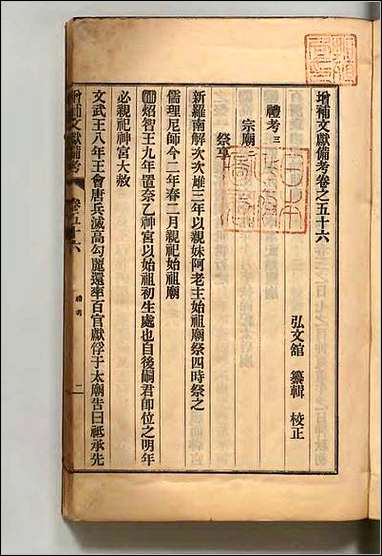 增補文獻備考卷之五十六
弘文舘 纂輯 校正
禮考三
宗廟
祭享
新羅南解次次雄三年以親妹阿老主始祖廟祭四時祭之
儒理尼師今二年春二月親祀始祖廟
炤智王九年置奈乙神宮以始祖初生處也自後嗣君卽位之明年
必親祀神宮大赦
文武王八年王會唐兵滅高勾麗還率百官獻俘于太廟告曰祗承先
增補文獻備考 卷五十六 禮考 二